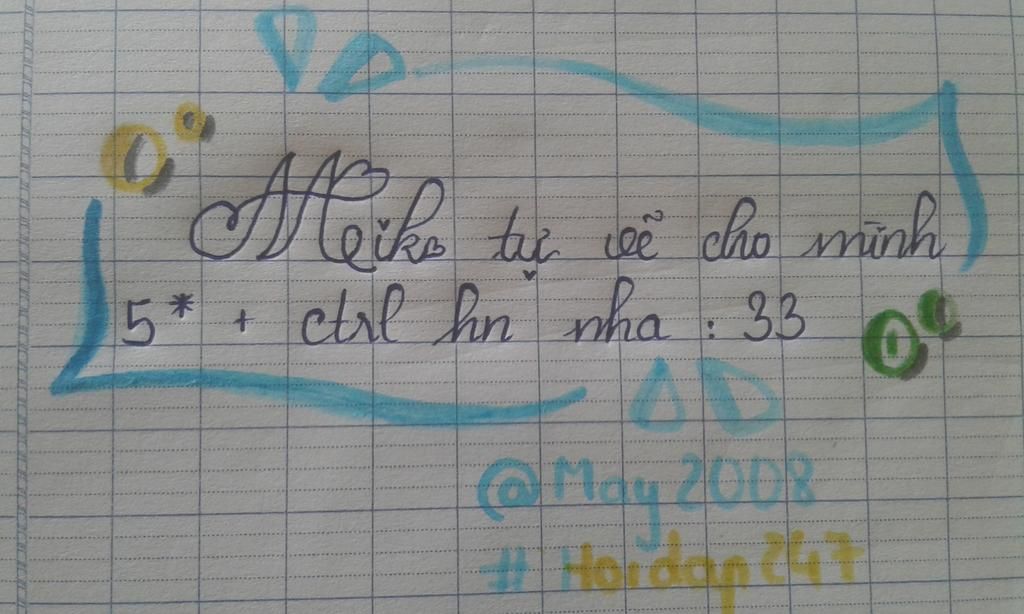 Meiko tự vẽ cho mình
5* + ctrl hn nha : 33
@May2008
#Hoidap247